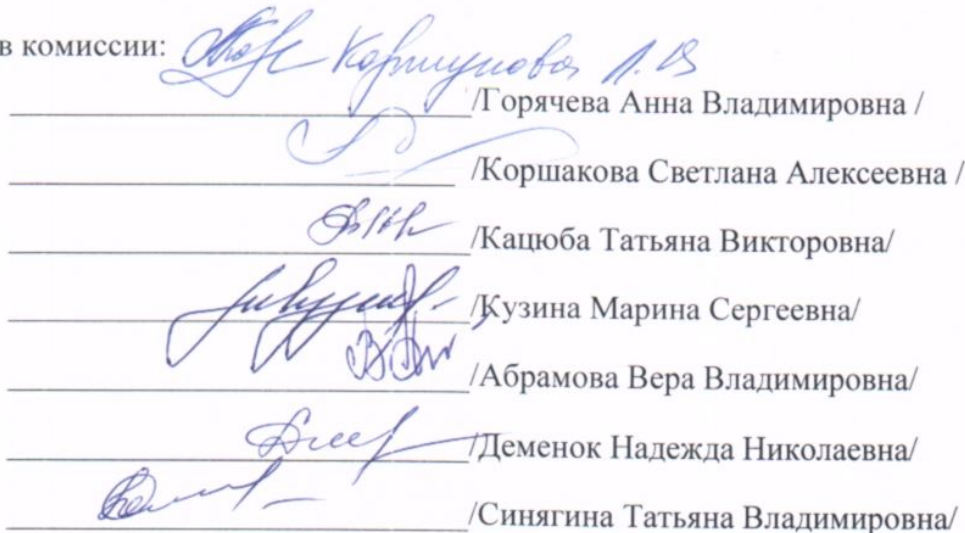 в комиссии:
/Горячева Анна Владимировна /
/Коршакова Светлана Алексеевна /
/Кацюба Татьяна Викторовна/
/Кузина Марина Сергеевна/
/Абрамова Вера Владимировна/
/Деменок Надежда Николаевна/
/Синягина Татьяна Владимировна/